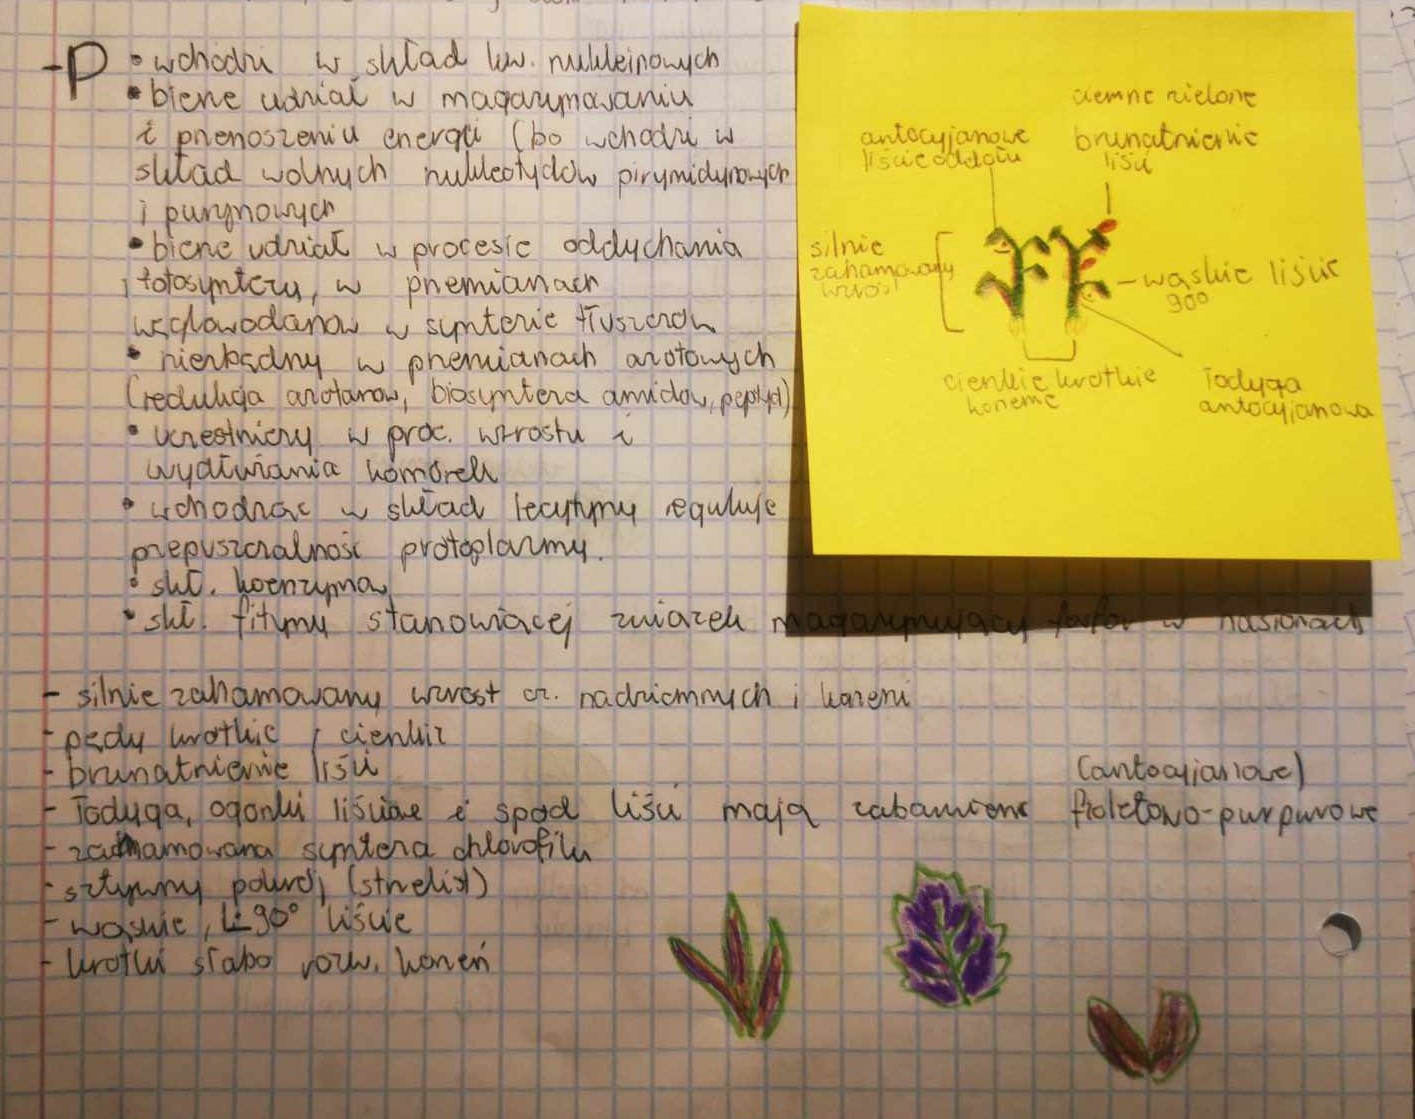 - P • wchodzi w skład kw. nukleinowych
• bierze udział w magazynowaniu
i przenoszeniu energii (bo wchodzi w
skład wolnych nukleotydów pirymidynowych
i purynowych
• bierze udział w procesie oddychania
i fotosyntezy, w przemianach
węglowodanów w syntezie tłuszczów
• niezbędny w przemianach azotowych
(redukcja azotanów, biosynteza amidów, peptyd)
• uczestniczy w proc. wzrostu i
wydłużania komórek
• wchodząc w skład lecytyny reguluje
przepuszczalność protoplazmy.
• skł. koenzymów
• skł. fityny stanowiącej związek magazynujący fosfor w nasionach
- silnie zahamowany wzrost cz. nadziemnych i korzeni
- pędy krótkie, cienkie
- brunatnienie liści
(antocyjanowe)
- Łodyga, ogonki liściowe i spód liści mają zabarwienie fioletowo-purpurowe
- zahamowana synteza chlorofilu
- sztywny pokrój (strzelisty)
- wąskie, 90° liście
- krótki słabo rozw. korzeń
ciemno zielone
antocyjanowe
liście oddołu
brunatnienie
liści
silnie
zahamowany
wzrost
wąskie liście
90°
cienkie krótkie
korzenie
łodyga
antocyjanowa